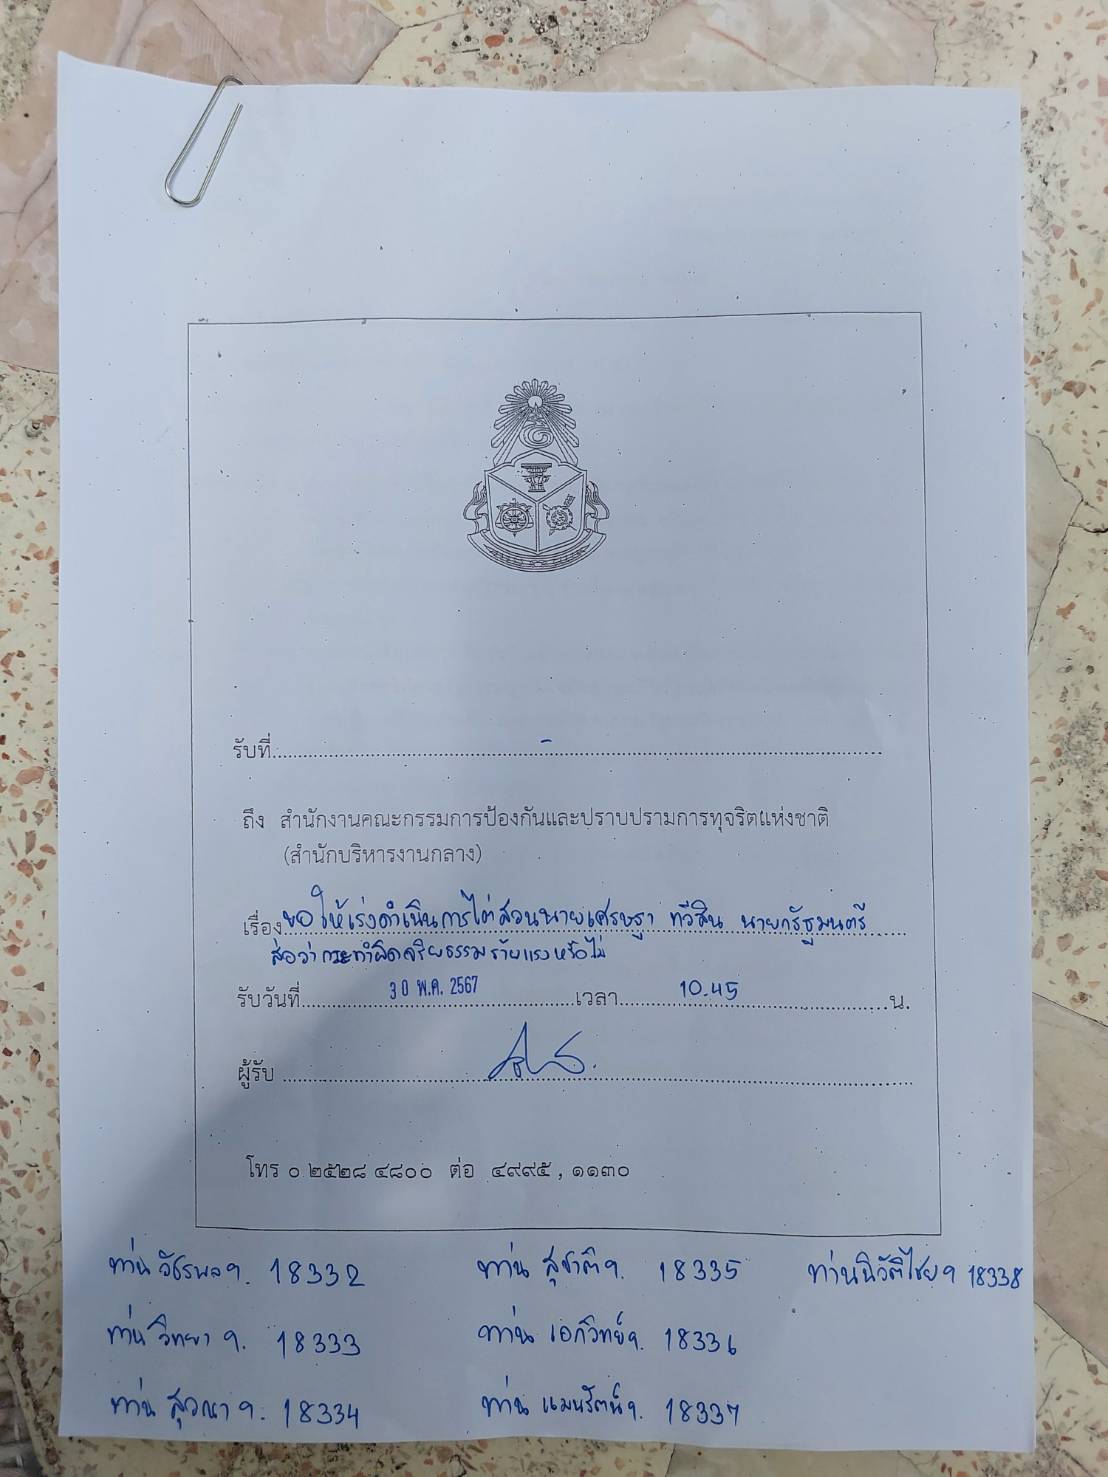 รับที่ -
ถึง สำนักงานคณะกรรมการป้องกันและปราบปรามการทุจริตแห่งชาติ
(สำนักบริหารงานกลาง)
เรื่อง ขอให้เร่งดำเนินการไต่สวนนายเศรษฐา ทวีสิน นายกรัฐมนตรี
ส่อว่ากระทำผิดจริยธรรมร้ายแรงหรือไม่
รับวันที่ 30 พ.ค. 2567 เวลา 10.45 น.
ผู้รับ
โทร ๐ ๒๕๒๘ ๔๘๐๐ ต่อ ๔๙๙๕ , ๑๑๓๐
ท่าน วัชรพลฯ. 18332 ท่าน สุชาติฯ. 18335 ท่านนิวัติไชยฯ 18338
ท่าน วิทยา ฯ. 18333 ท่าน เอกวิทย์ฯ. 18336
ท่าน สุวณา ฯ. 18334 ท่าน แมนรัตน์ฯ. 18337